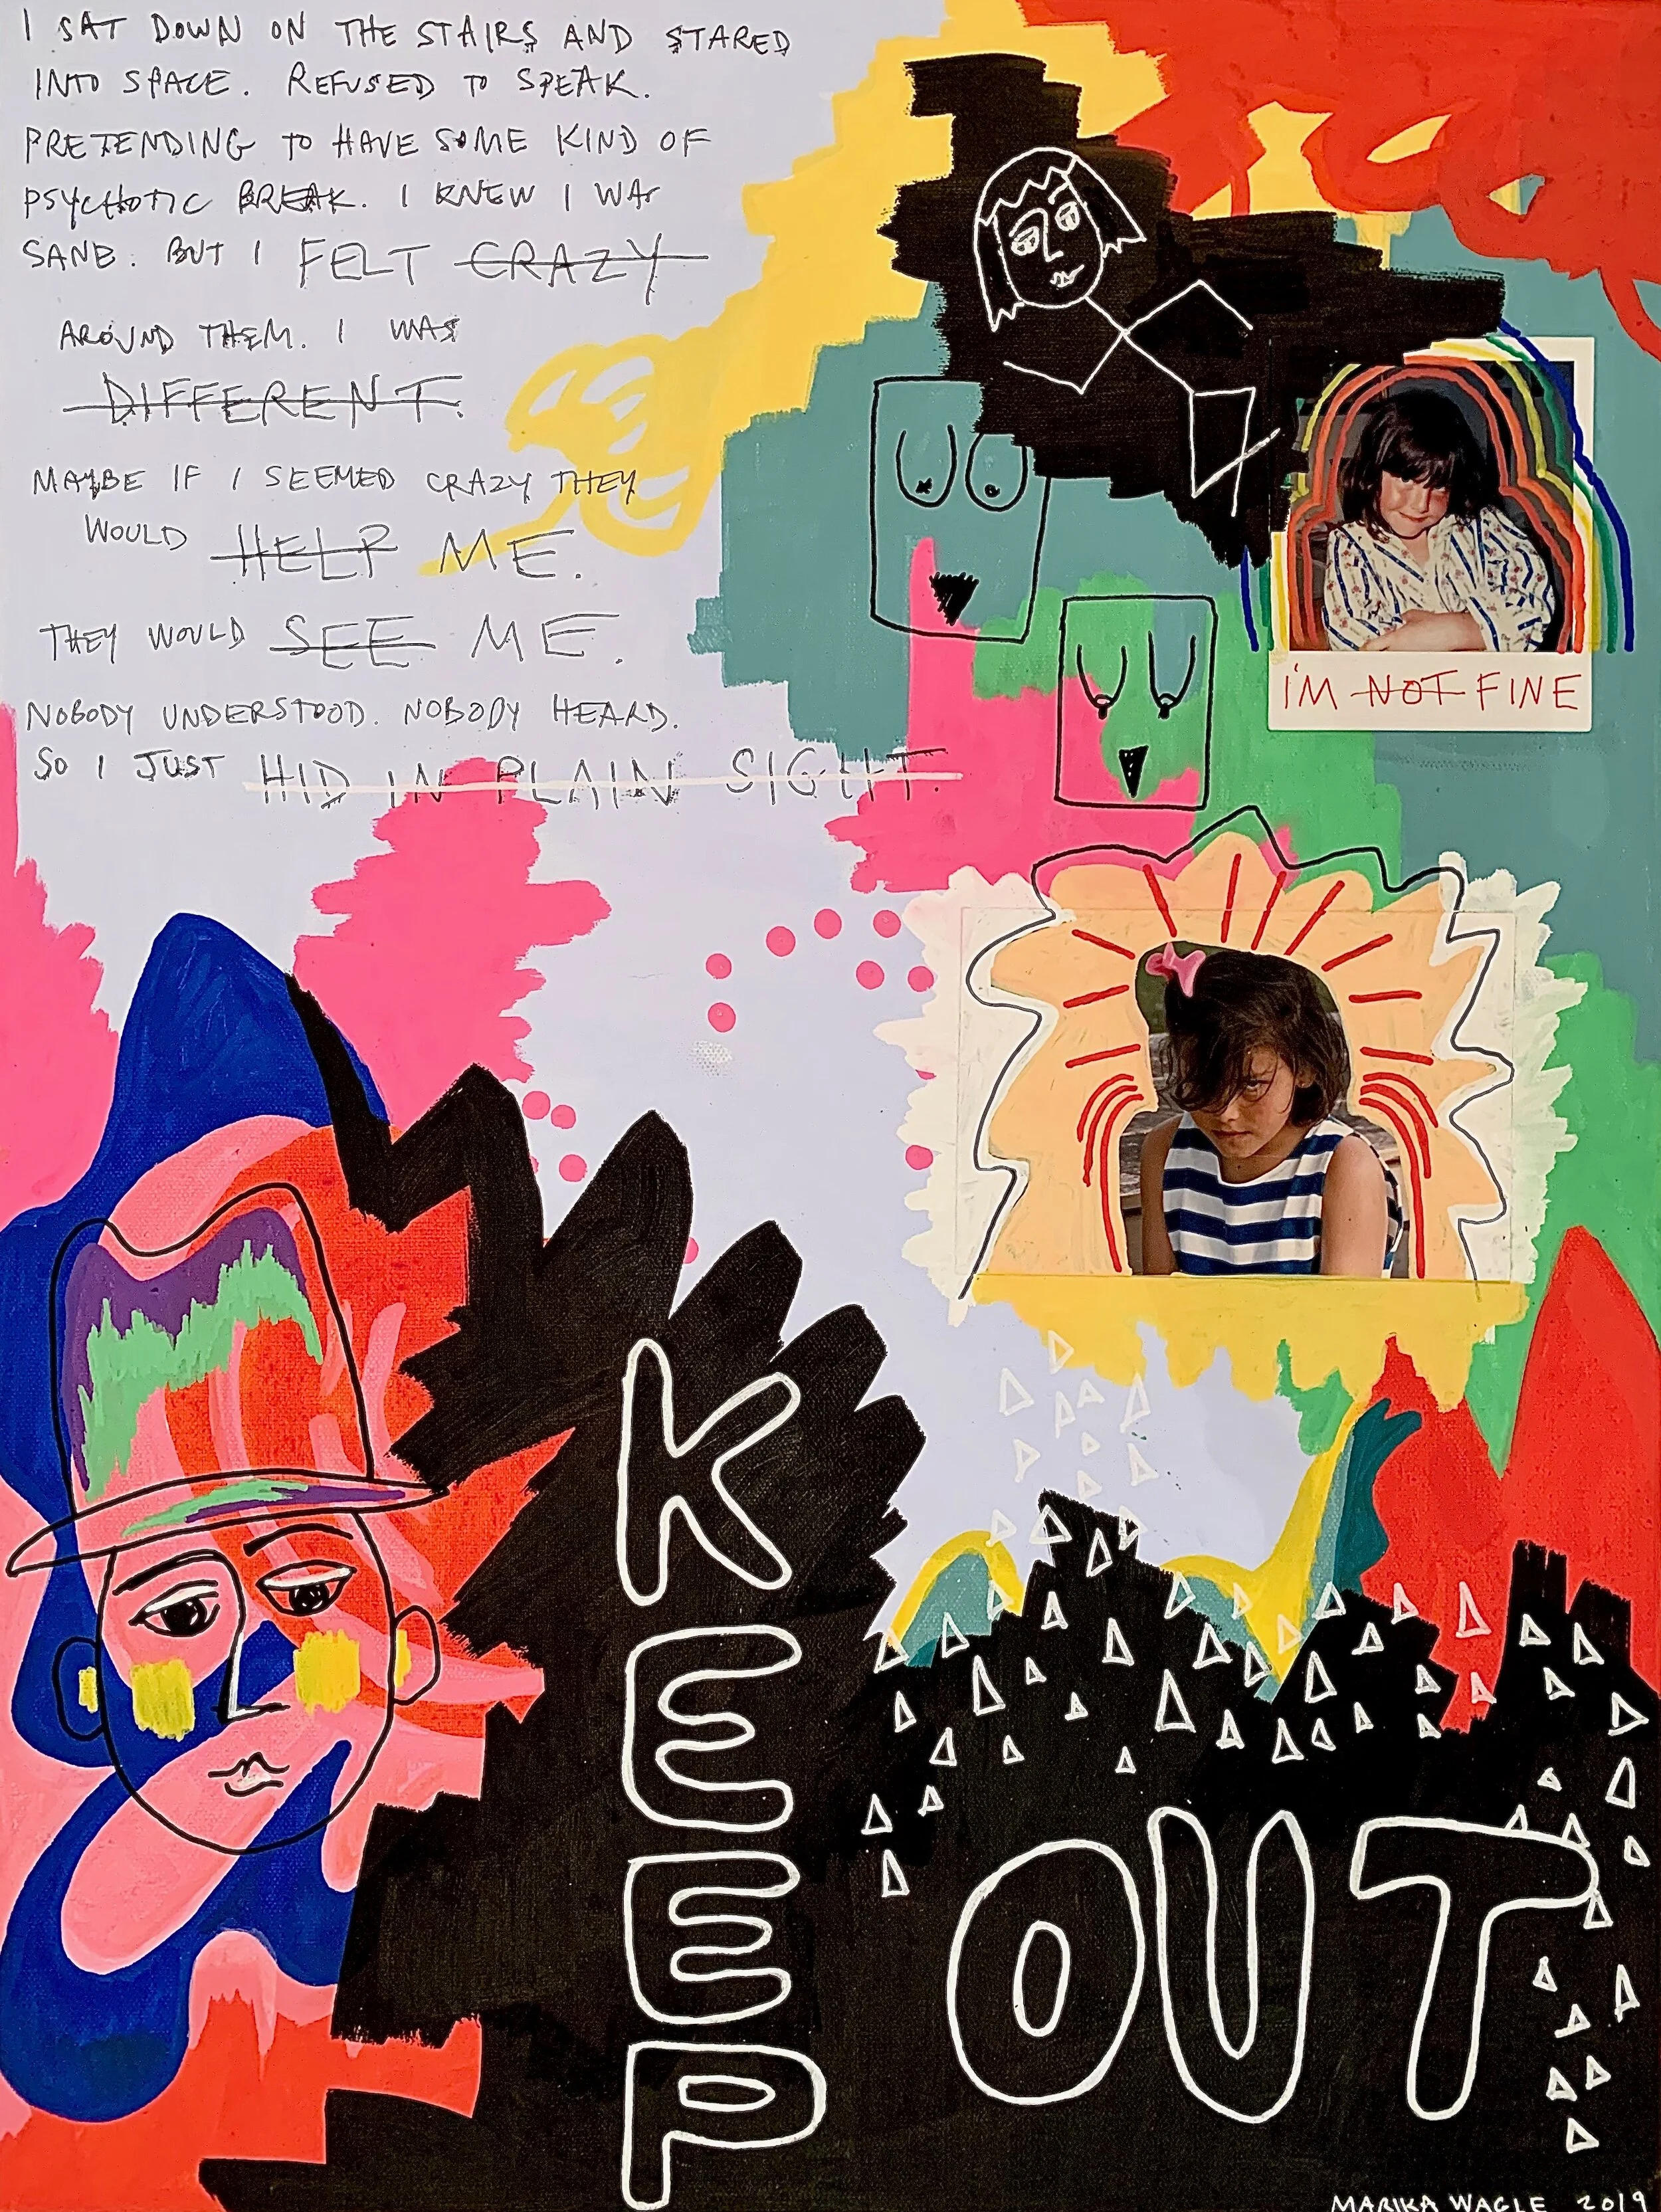 I SAT DOWN ON THE STAIRS AND STARED
INTO SPACE. REFUSED TO SPEAK.
PRETENDING TO HAVE SOME KIND OF
PSYCHOTIC BREAK. I KNEW I WAS
SANE. BUT I FELT CRAZY
AROUND THEM. I WAS
DIFFERENT.
MAYBE IF I SEEMED CRAZY THEY
WOULD HELP ME.
THEY WOULD SEE ME.
NOBODY UNDERSTOOD. NOBODY HEARD.
SO I JUST HID IN PLAIN SIGHT.
I'M NOT FINE
KEEP
OUT
MARIKA WAGLE 2019